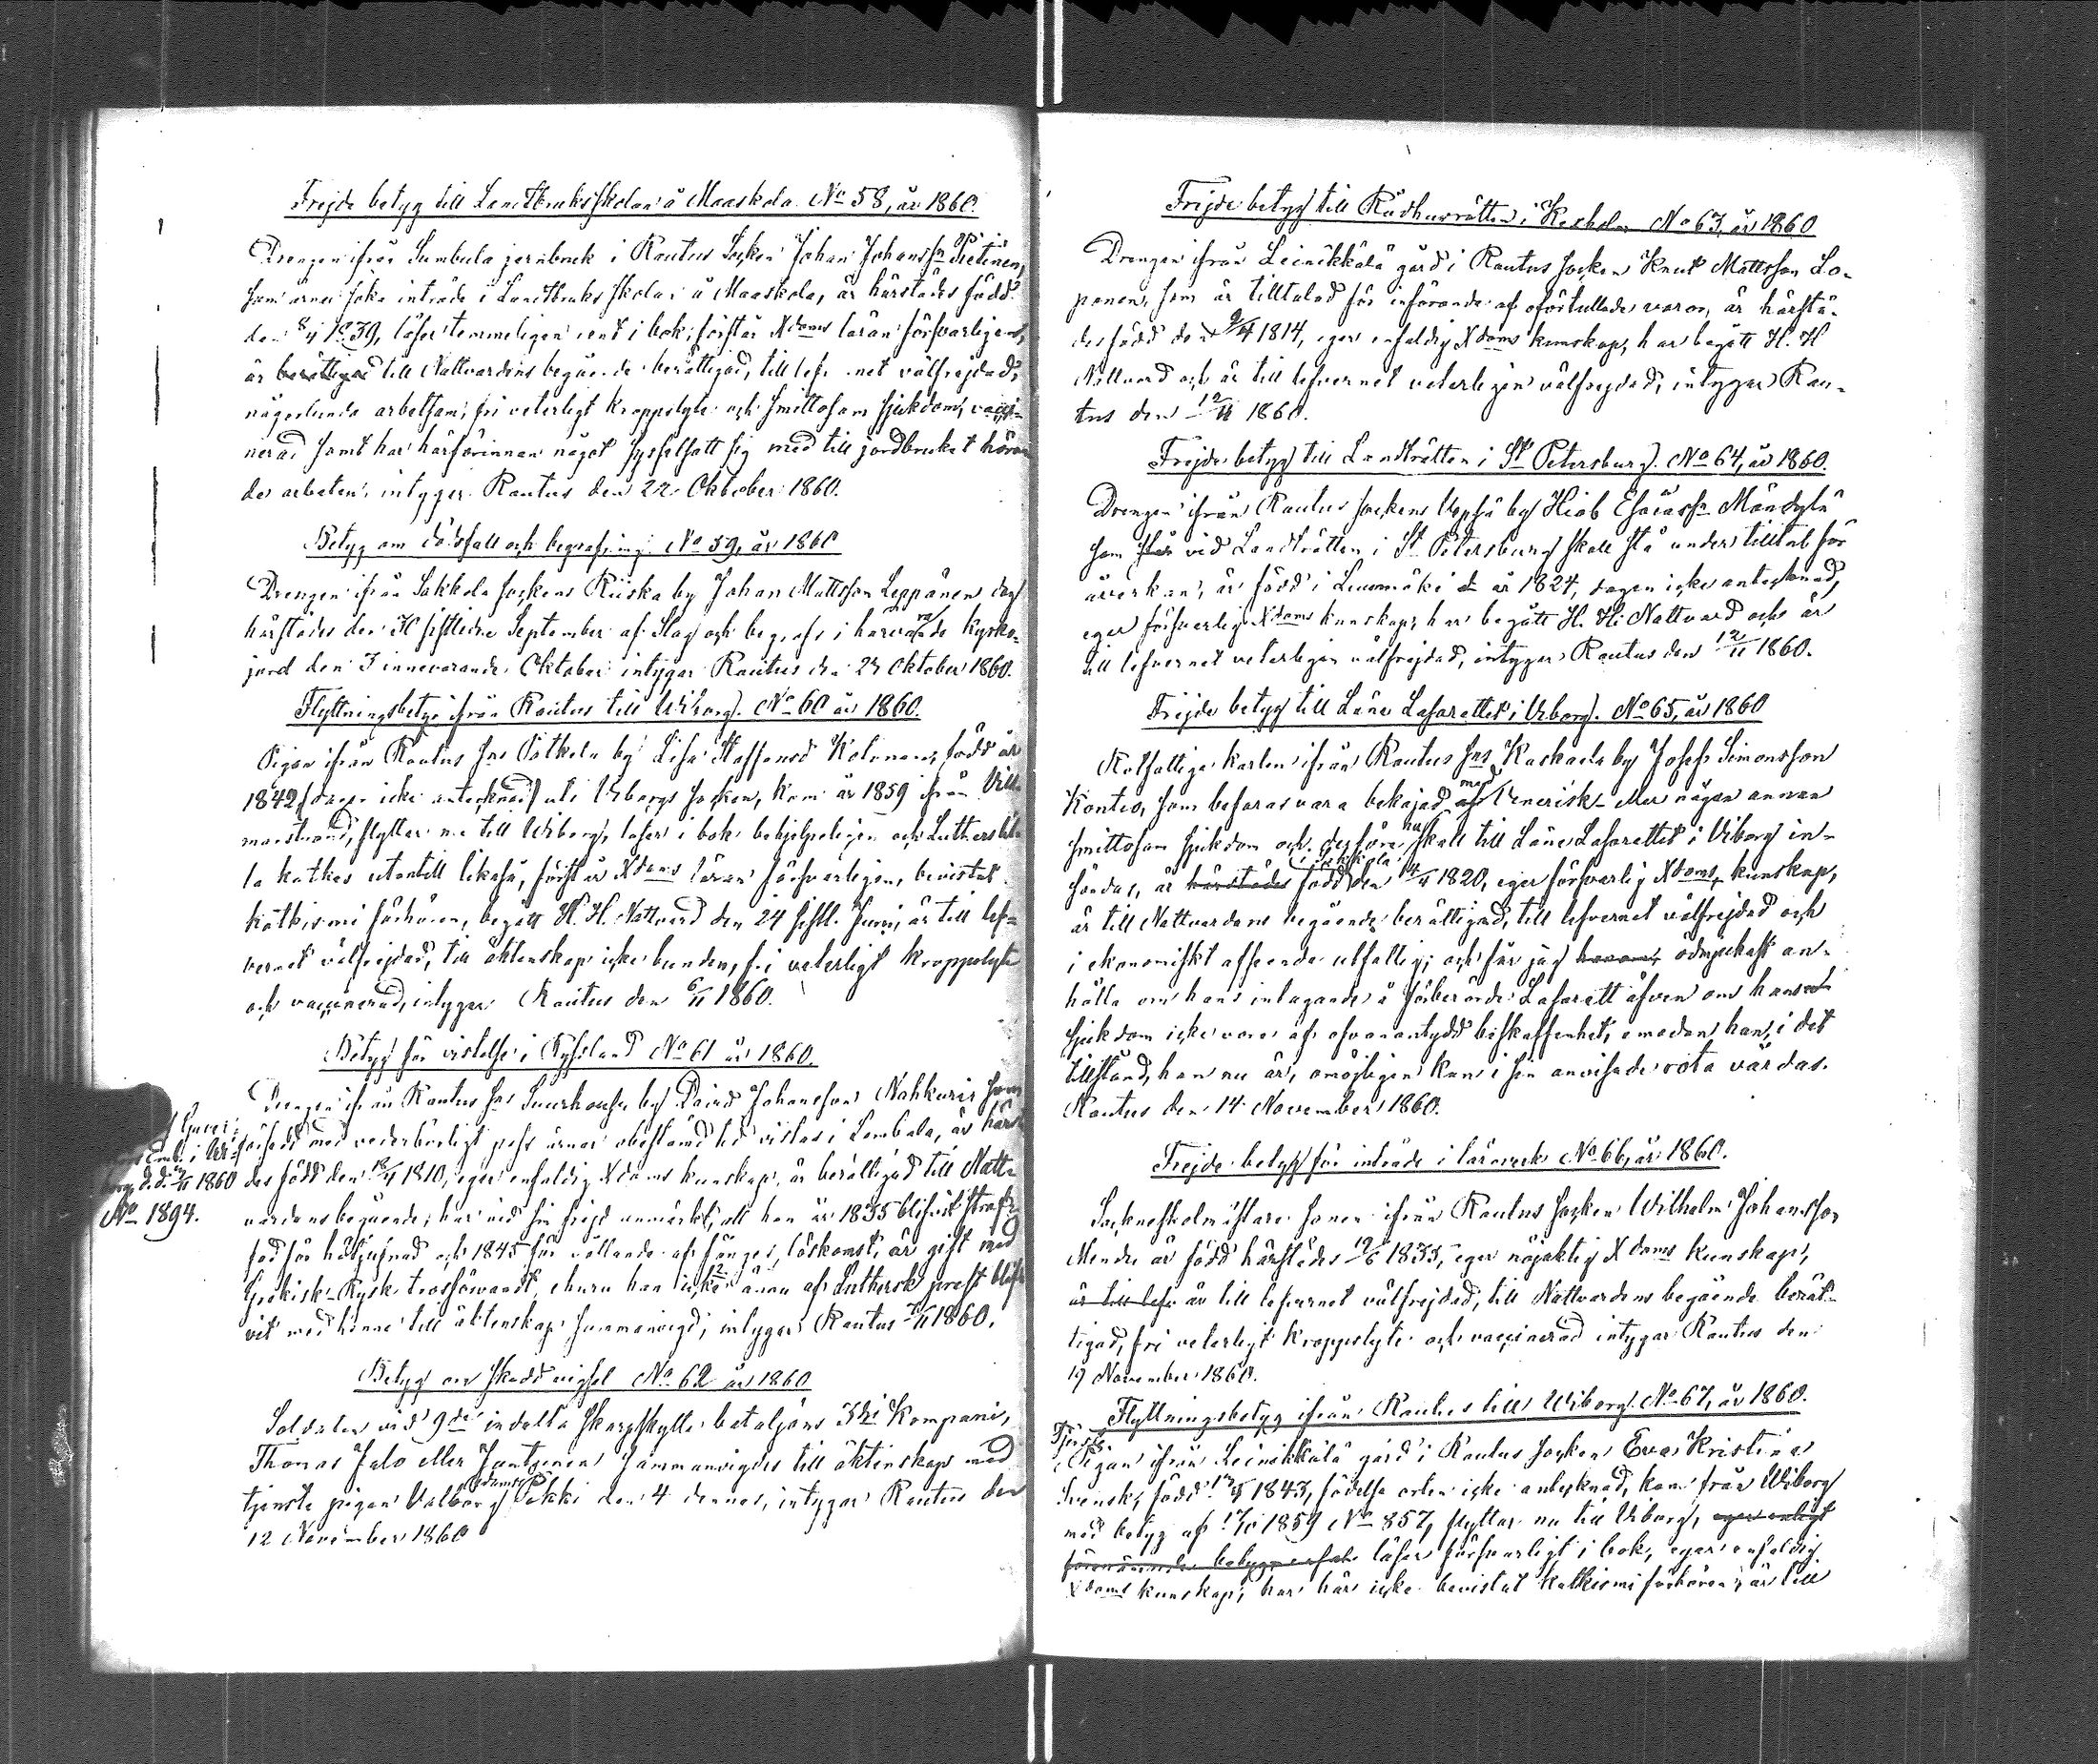 Frejde betyg till Landtbruksskolan å Maaskola No 58, år 1860.
Drengen ifrån Sumbula jernbruk i Rautus Socken Johan Johansson Pietinen,
som ärnar söka inträde i Landtbruks skolan å Maaskola, är härstädes född
den 8/4 1839, läser temmeligen rent i bok, förstår Xdoms läran försvarligen,
är berättigad till Nattvardens begående berättigad, till lefvernet välfrejdad,
någorlunda arbetsam, fri veterligt kroppslyte och smittosam sjukdom, vacci-
nerad samt har härförinnan något sysselsatt sig med till jordbruket höran
de arbeten, intygar Rautus den 22 Oktober 1860.
Betyg om dödsfall och begrafning No 59, år 1860
Drengen ifrån Sakkola sockens Riiska by Johan Mattsson Leppänen dog
härstädes den 30 sistlidne September af Slag och begrofs i harvarande kyrko-
jord den 7 innevarande Oktober intygar Rautus den 27 Oktober 1860.
Flyttningsbetyg ifrån Rautus till Wiborg. No 60 år 1860.
Pigan ifrån Rautus Sns Potkela by Lisa Staffansd Kolonen, född år
1842 (dagen icke antecknad) uti Wiborgs socken, kom år 1859 ifrån Vill
manstrand, flyttar nu till Wiborg, läser i bok behjelpeligen och Luthers lil
la katkes utantill likaså, förstår Xdoms läran försvarligen, bevistat
katkismi förhören, begått H. H. Nattvard den 24 sistl. Juni, är till lef-
vernet välfrejdad, till äktenskap icke bunden, fri veterligt kroppslyte
och vaccinerad, intygar Rautus den 6/11 1860.
Betyg för vistelse i Ryssland No 61 år 1860.
Drengen ifrån Rautus Sns Suurhousu by David Johansson Nahkuris som
försedd med vederbörligt pass ärnar obestämd tid vistas i Lembala, är härstä
des född den 18/4 1810, eger enfaldig Xdoms kunskap, är berättigad till Natt-
vardens begående; har vid sin frejd anmärkt, att han år 1835 blifvit straf-
fad för hästjufnad och 1845 för vållande af fånges löskomst, är gift med
Grekisk-Rysk trosförvandt, ehuru han icke ännu af Luthersk prest blif
vit med henne till äktenskap sammanvigd, intygar Rautus 7/11 1860.
Guver-
i Wi-
borg d. d. /11 1860
No 1894.
Betyg om skedd vigsel No 62 år 1860
Soldaten vid 9de indelta Skarpskytte bataljons 3dje Kompani,
Thomas Jalo eller Jantunen sammanvigdes till äktenskap med
tjenste pigan Valborg Adamsd Pekki den 4 dennes, intygar Rautus den
12 November 1860
Frejde betyg till Rådhusrätten i Kexholm No 63, år 1860
Drengen ifrån Leinikkälä gård i Rautus socken Knut Mattsson Lo-
ponen, som är tilltalad för införande af oförtullade varor, är härstä-
des född den 9/4 1814, eger enfaldig Xdoms kunskap, har begått H. H
Nattvard och är till lefvernet veterligen välfrejdad, intygar Rau-
tus den 12/11 1860.
Frejde betyg till Landträtten i St Petersburg. No 64, år 1860.
Drengen ifrån Rautus sockens by Hiob Esaiasson Mändylä
som står vid Landträtten i St Petersburg skall stå under tilltal för
åverkan, är född i Leinomäki år 1824, dagen icke antecknad,
eger försvarlig Xdoms kunskap, har begått H. H. Nattvard och är
till lefvernet veterligen välfrejdad, intygar Rautus den 12/11 1860.
Frejde betyg till Läns Lasarettet i Wiborg. No 65, år 1860
Rotfattige karlen ifrån Rautus Sns Kaskaala by Josef Simonsson
Kontio, som befaras vara behajad af med Venerisk eller någon annan
smittosam sjukdom och derföre nu skall till Läns Lasarettet i Viborg in-
föras, är härstädes i Sakkola född den 14/4 1820, eger försvarlig Xdoms kunskap,
är till Nattvardens begående berättigad, till lefvernet välfrejdad och
i ekonomiskt afseende utfattig; och får jag honom, ödmjukast an-
hålla om hans intagande å förberörde Lasarett äfven om hans
sjukdom icke vore af ofvanantydd beskaffenhet, emedan han, i det
tillstånd, han nu är, omöjligen kan i sin anvisade rota vårdas.
Rautus den 14 November 1860.
Frejde betyg för inträde i läroverk No 66, år 1860.
Sockneskolmästare sonen ifrån Rautus socken Wilhelm Johansson
Mendre är född härstädes 19/6 1835, eger nöjaktig Xdoms kunskap,
är till lefv är till lefvernet välfrejdad, till Nattvardens begående berät-
tigad, fri veterligt kroppslyte och vaccinerad intygar Rautus den
19 November 1860.
Flyttningsbetyg ifrån Rautus till Wiborg. No 67, år 1860.
Tjenste
Pigan ifrån Leinikkälä gård i Rautus socken Eva Kristina
Svensk, född 12/4 1843, födelse orten icke antecknad, kom från Wiborg
med betyg af 17/10 1859 No 857, flyttar nu till Viborg, eger enligt
förenämnda betyg läser försvarligt i bok, eger enfaldig
Xdoms kunskap, har här icke bevistat katkismi förhören, är till